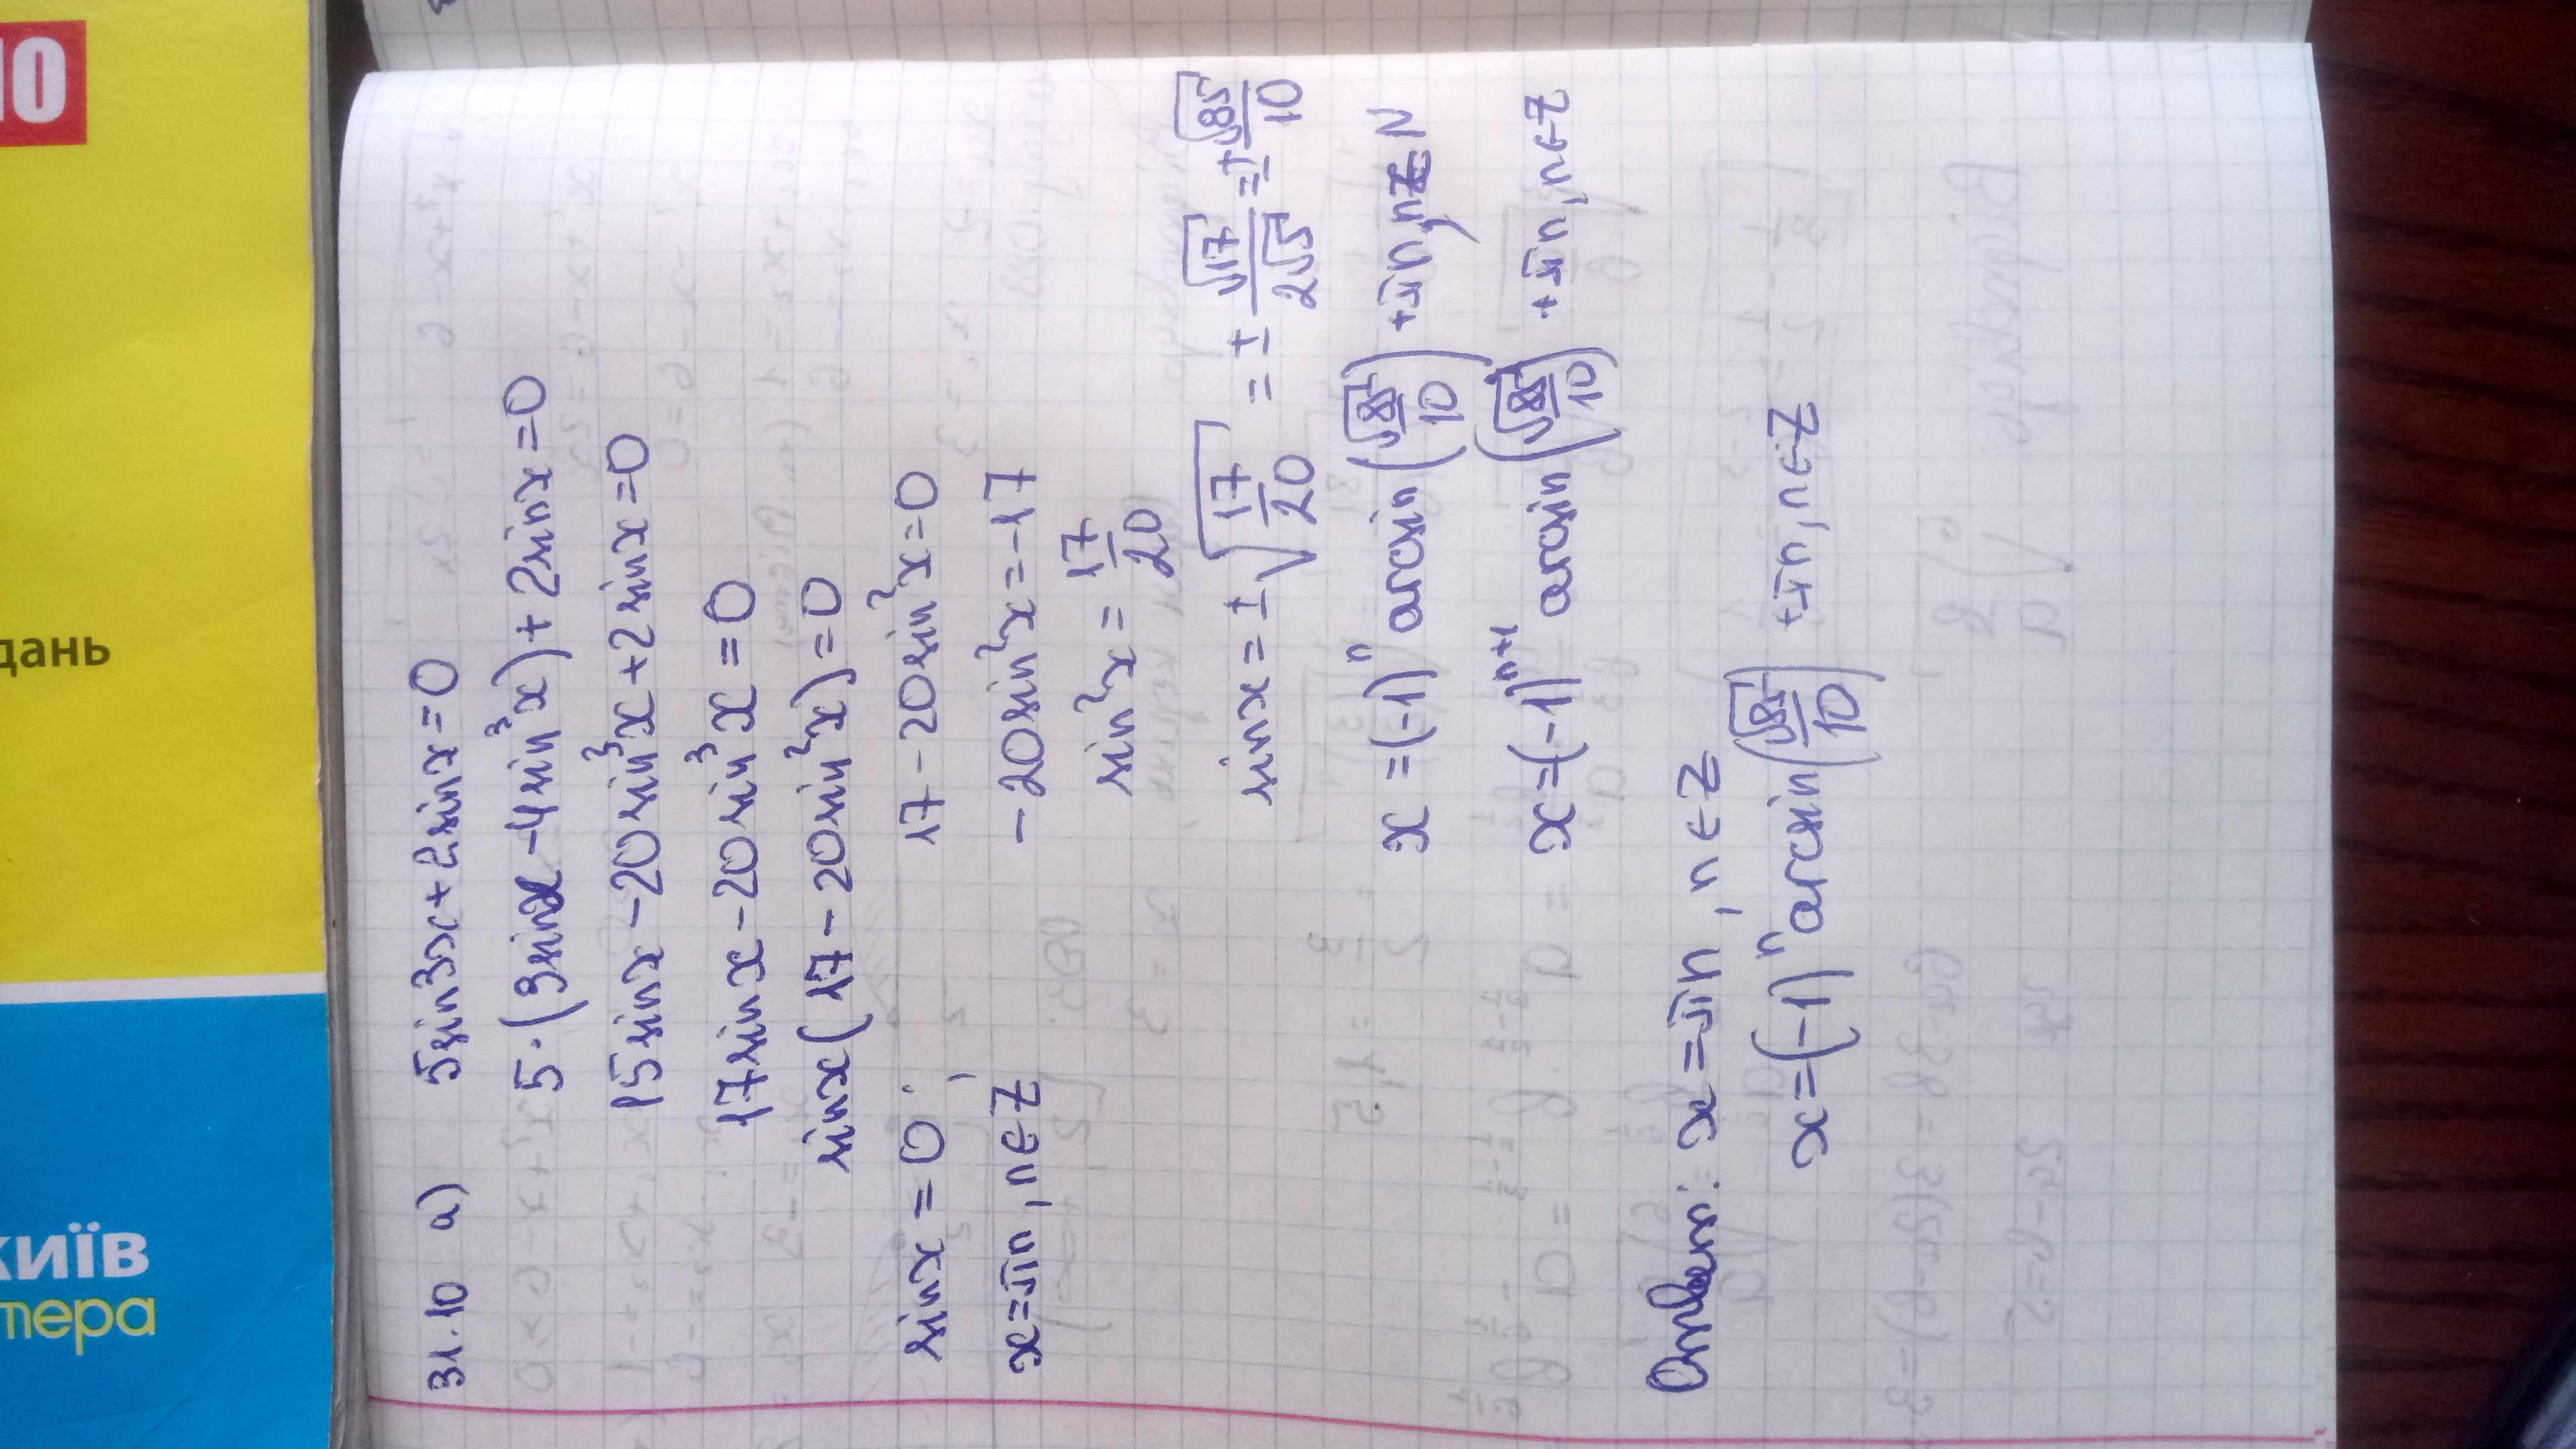 10
дань
київ
тера
31.10 а) 5sin3x+2sinx=0
5·(3sinx-4sin³x)+2sinx=0
15sinx-20sin³x+2sinx=0
17sinx-20sin³x=0
sinx(17-20sin²x)=0
sinx=0 17-20sin²x=0
x=πn, n∈Z -20sin²x=-17
sin²x=17/20
sinx=±√(17/20)=±√17/(2√5)=±√85/10
x=(-1)ⁿ arcsin(√85/10)+πn, n∈N
x=(-1)ⁿ⁺¹ arcsin(√85/10)+πn, n∈Z
Ответ: x=πn, n∈Z
x=(-1)ⁿ arcsin(√85/10) ±πn, n∈Z